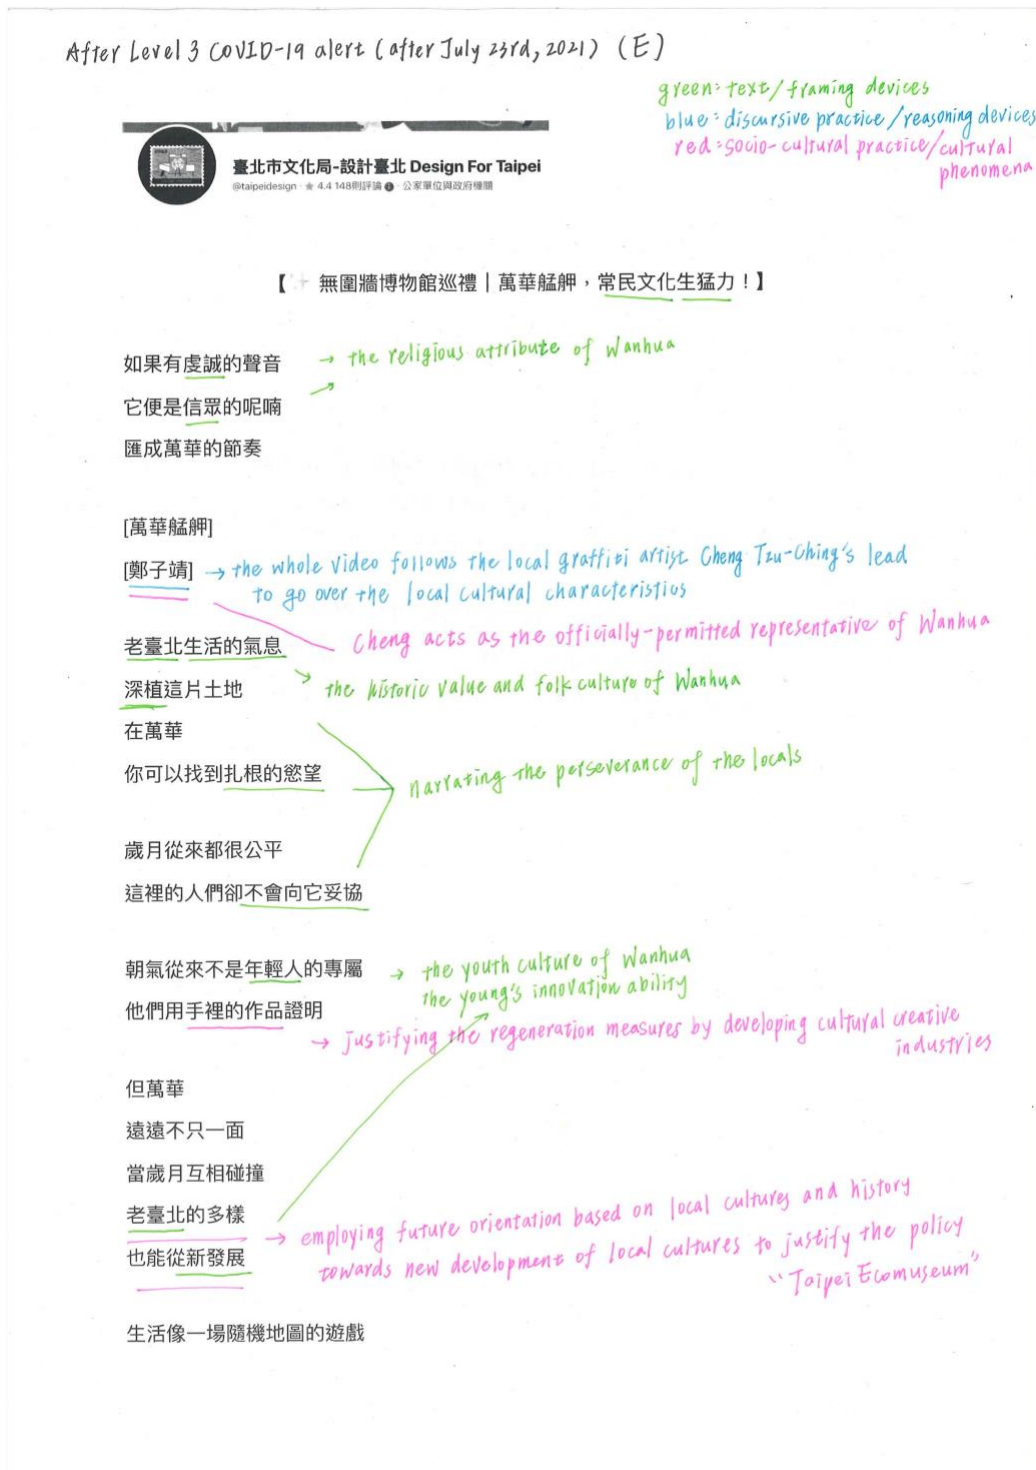 After Level 3 COVID-19 alert (after July 23rd, 2021) (E)
green: text/framing devices
blue: discursive practice/reasoning devices
red: socio-cultural practice/cultural
phenomena
臺北市文化局-設計臺北 Design For Taipei
@taipeidesign · ★ 4.4 148則評論 · 公家單位與政府機關
【✨ 無圍牆博物館巡禮|萬華艋舺,常民文化生猛力!】
如果有虔誠的聲音
→ the religious attribute of Wanhua
它便是信眾的呢喃
匯成萬華的節奏
[萬華艋舺]
[鄭子靖]
→ the whole video follows the local graffiti artist Cheng Tzu-Ching's lead
to go over the local cultural characteristics
Cheng acts as the officially-permitted representative of Wanhua
老臺北生活的氣息
深植這片土地
→ the historic value and folk culture of Wanhua
在萬華
你可以找到扎根的慾望
narrating the perseverance of the locals
歲月從來都很公平
這裡的人們卻不會向它妥協
朝氣從來不是年輕人的專屬
→ the youth culture of Wanhua
the young's innovation ability
他們用手裡的作品證明
→ justifying the regeneration measures by developing cultural creative
industries
但萬華
遠遠不只一面
當歲月互相碰撞
老臺北的多樣
→ employing future orientation based on local cultures and history
towards new development of local cultures to justify the policy
"Taipei Ecomuseum"
也能從新發展
生活像一場隨機地圖的遊戲